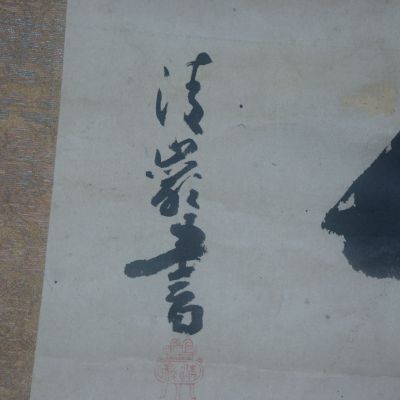 清巖書